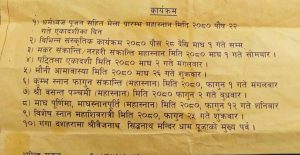 कार्यक्रम
१) धर्मध्वजा पूजन सहित मेला प्रारम्भ महास्नान मिति २०८० पौष २२
गते एकादशीका दिन
२) विभिन्न सांस्कृतिक कार्यक्रम २०८० पौस २८ देखि माघ १ गते सम्म
३) मकर संक्रान्ति महास्नान मिति २०८० माघ १ गते सोमबार ।
४) एकादशी महास्नान मिति २०८० माघ २ गते मंगलबार
५) मौनी आमावास्या महास्नान मिति २०८० माघ २६ गते शुक्रबार
६) कुम्भ स्नान फागुन संक्रान्ति (महास्नान) मिति २०८०, फागुन १ गते मंगलबार
७) श्री बसन्त पञ्चमी (महास्नान) मिति २०८० फागुन २ गते बुधबार ।
८) माघ पूर्णिमा, माघस्नानपूर्ति (महास्नान) मिति २०८०, फागुन १२ गते शनिबार
९) विशेष स्नान महाशिवरात्री मिति २०८०, फागुन २५ गते शुक्रबार ।
१०) गंगा दशहरामा सिद्धनाथ मन्दिर धाम पूजाको मुख्य पर्व ।